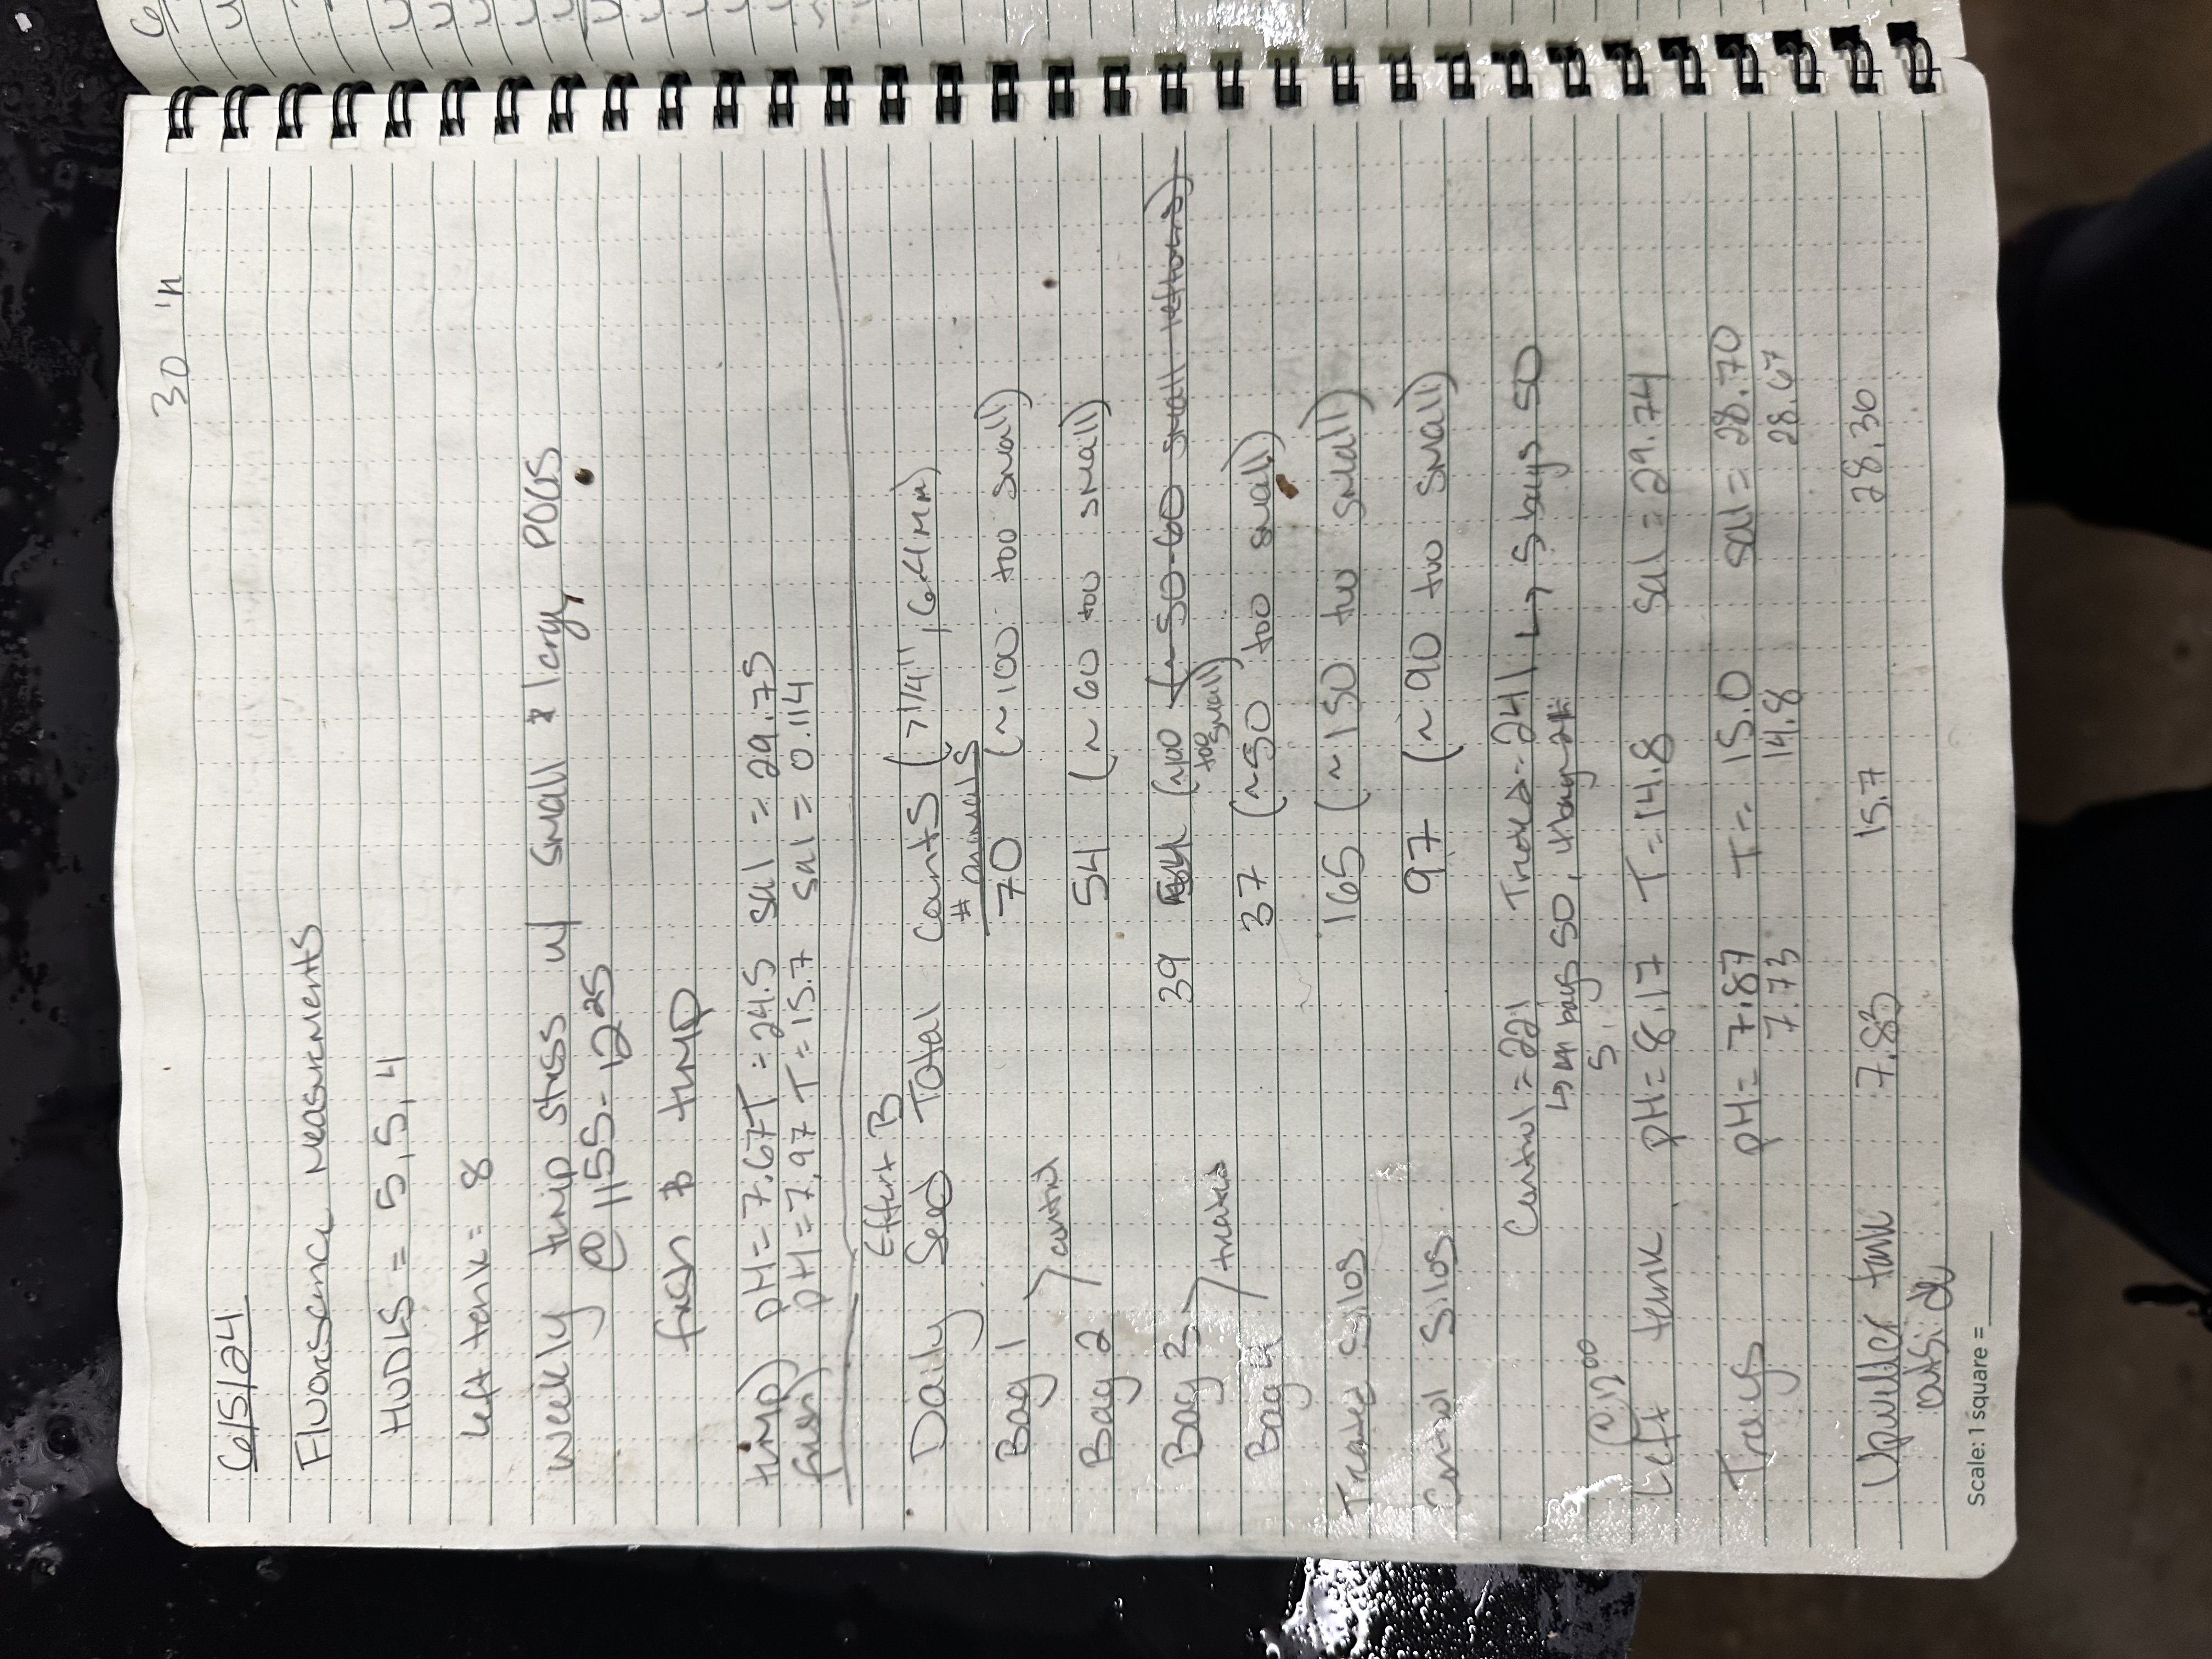 30 in
6/5/24
Fluorescence Measurements
HUDLS = 5, 5, 4
Left tank = 8
Weekly temp stress w/ small & large POGS
@ 1155 - 1225
fresh & temp
temp) pH = 7.67 T = 24.5 sal = 29.75
fresh) pH = 7.97 T = 15.7 sal = 0.114
Effort B
Daily Seed Total Counts (>1/4", 6.4mm)
# animals
Bag 1 70 (~100 too small)
control
Bag 2 54 (~60 too small)
Bag 3 39 54 (~100 (~50-60 small leftovers)
too small)
treated
Bag 4 37 (~50 too small)
Treated Silos 165 (~150 too small)
Control Silos 97 (~90 too small)
Control = 221 Treated = 241 ↳ 5 bags 50
↳ 4 bags 50, 4 bag 21
5
@ 1200
Left tank pH = 8.17 T = 14.8 sal = 29.74
Trays pH = 7.87 T = 15.0 sal = 28.70
7.73 14.8 28.67
Upweller tank 7.83 15.7 28.36
outside
Scale: 1 square =